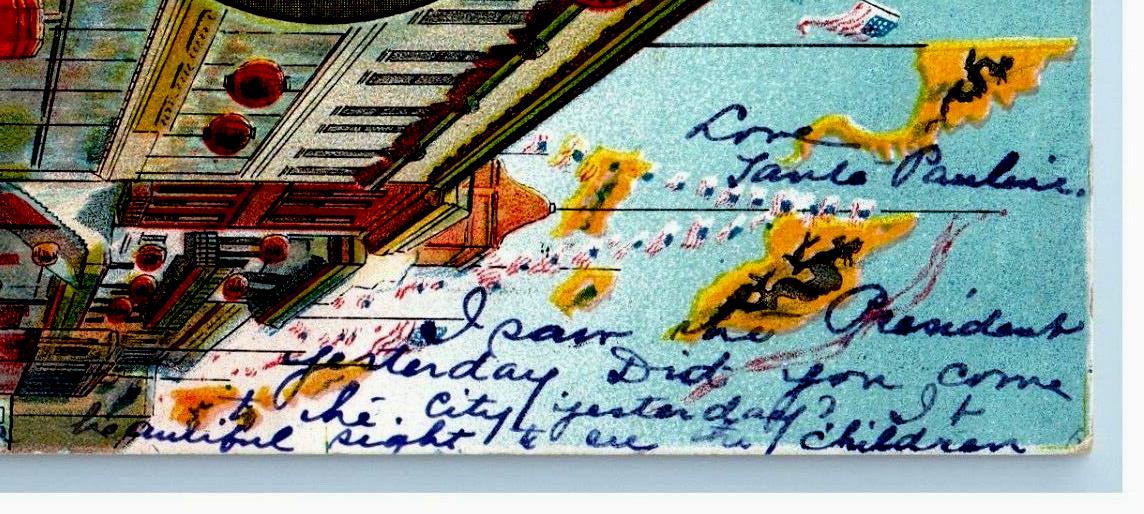 Love
Tante Pauline.
I saw the President
yesterday Did you come
to the City yesterday? It
beautiful sight to see the children